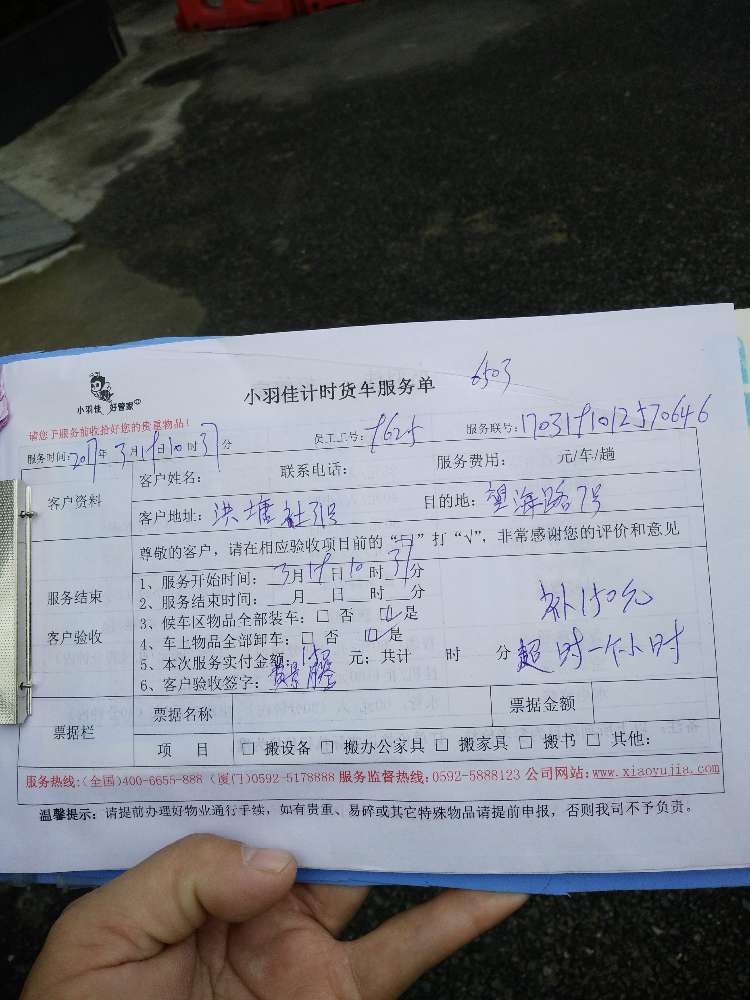 小羽佳 好管家
小羽佳计时货车服务单
6503
请您于服务前收拾好您的贵重物品!
服务时间: 2017年3月19日10时37分
员工工号: 9625
服务联号: 170319101257064 6
客户资料
客户姓名: 联系电话: 服务费用: 元/车/趟
客户地址: 洪塘社 目的地: 望海路7号
服务结束
客户验收
尊敬的客户,请在相应验收项目前的“口”打“√”,非常感谢您的评价和意见
1、服务开始时间: 3月19日10时37分
2、服务结束时间: 月 日 时 分
3、候车区物品全部装车: □ 否 □是
4、车上物品全部卸车: □ 否 □是
5、本次服务实付金额: 150 元; 共计 时 分
6、客户验收签字:
补150元
超时一个小时
票据栏
票据名称 票据金额
项 目 □ 搬设备 □ 搬办公家具 □ 搬家具 □ 搬书 □ 其他:
服务热线:(全国)400-6655-888 (厦门)0592-5178888 服务监督热线: 0592-5888123 公司网站: www.xiaoyujia.com
温馨提示: 请提前办理好物业通行手续, 如有贵重、易碎或其它特殊物品请提前申报, 否则我司不予负责。